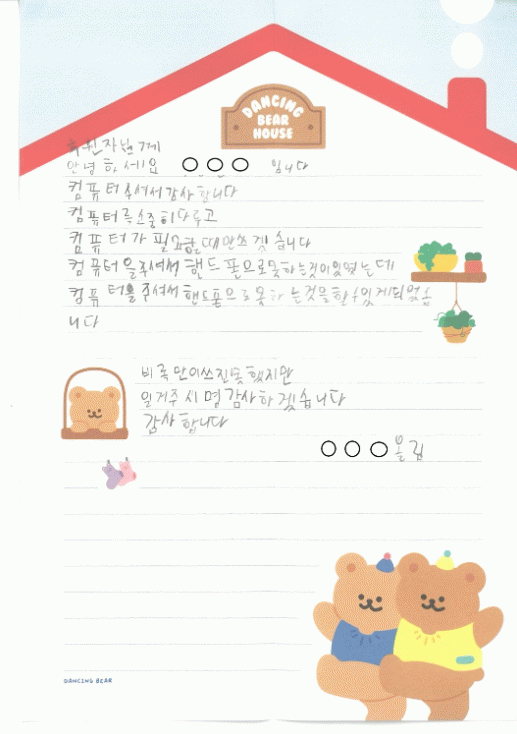 DANCING
BEAR
HOUSE
후원자님께
안녕하세요 ○○○ 입니다
컴퓨터 주셔서 감사합니다
컴퓨터를 소중히 다루고
컴퓨터가 필요할 때만 쓰겠습니다
컴퓨터을 주셔서 핸드폰으로 못하는 것이 있었는데
컴퓨터를 주셔서 핸드폰으로 못하는 것을 할 수 있게 되었습
니다
비록 많이 쓰진 못했지만
읽어주시면 감사하겠습니다
감사합니다
○○○ 올림
DANCING BEAR